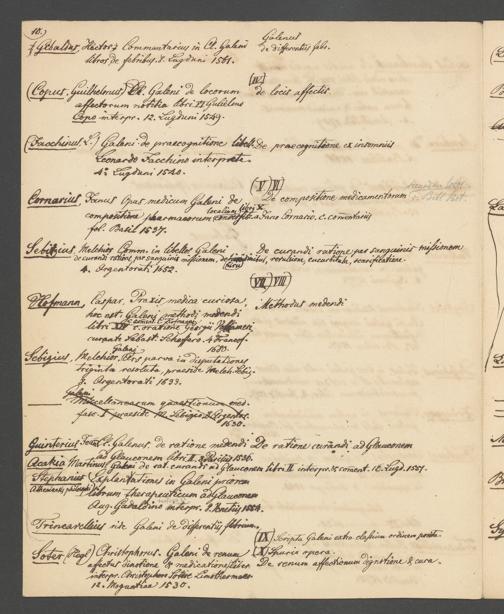 10.
Gyraldus, Hector, Commentarius in Cl. Galeni
libros de febribus. 8. Lugduni 1561.
Galenus
de differentiis febr.
(Copus, Guilhelmus) Cl. Galeni de locorum
affectorum notitia libri VI Guilielmo
Copo interpr. 12. Lugduni 1549.
[IV]
de locis affectis
(Facchinus, L.) Galeni de praecognitione libell.
Leonardo Facchino interprete.
4. Lugduni 1540.
De praecognitione ex insomniis
[V] [VI]
Cornarius, Janus Opus medicum Galeni de
compositione pharmacorum
localium libri X
a Jano Cornario, c. commentariis
fol. Basil 1537.
De compositione medicamentorum
Sebizius, Melchior Comm. in libellos Galeni
de curandi ratione per sanguinis missionem, de hirudinibus, revulsione, cucurbitula, scarificatione.
4. Argentorati 1652.
De curandi ratione per sanguinis missionem
[VII] [VIII]
Hofmann, Caspar. Praxis medica curiosa,
hoc est: Galeni methodi medendi
libri XIV
curante Sebast. Scheffero. 4 Francof.
1680.
Methodus medendi
Sebizius, Melchior, Ars parva in disputationes
triginta resoluta, praeside Melch. Sebiz.
8. Argentorati 1633.
Galeni
Miscellanearum quaestionum med.
fasc. I praeside M. Sebizio 8. Argentor.
1630.
Guinterius, Joan. Cl. Galenus, de ratione medendi
ad Glauconem libri II. 8. Parisiis 1536.
De ratione curandi ad Glauconem
Acakia Martinus Galeni de rat. curandi ad Glauconem libri II interpr. & coment. 12. Lugd. 1551.
Stephanus Explanationes in Galeni priorem
(Atheniensis, philosophi) librum therapeuticum ad Glauconem
Aug. Gadaldino interpr. 8. Venetiis 1554.
Trincavellius vide Galeni de differentiis febrium.
[IX] Scripta Galeni extra classium ordinem posita.
[X] Spuria opera.
Soter (Heyl) Christophorus. Galeni de renum
affectus dinotione & medicatione liber
interpr. Christophoro Sotere
12. Moguntiae 1530.
De renum affectionum dignotione & cura.